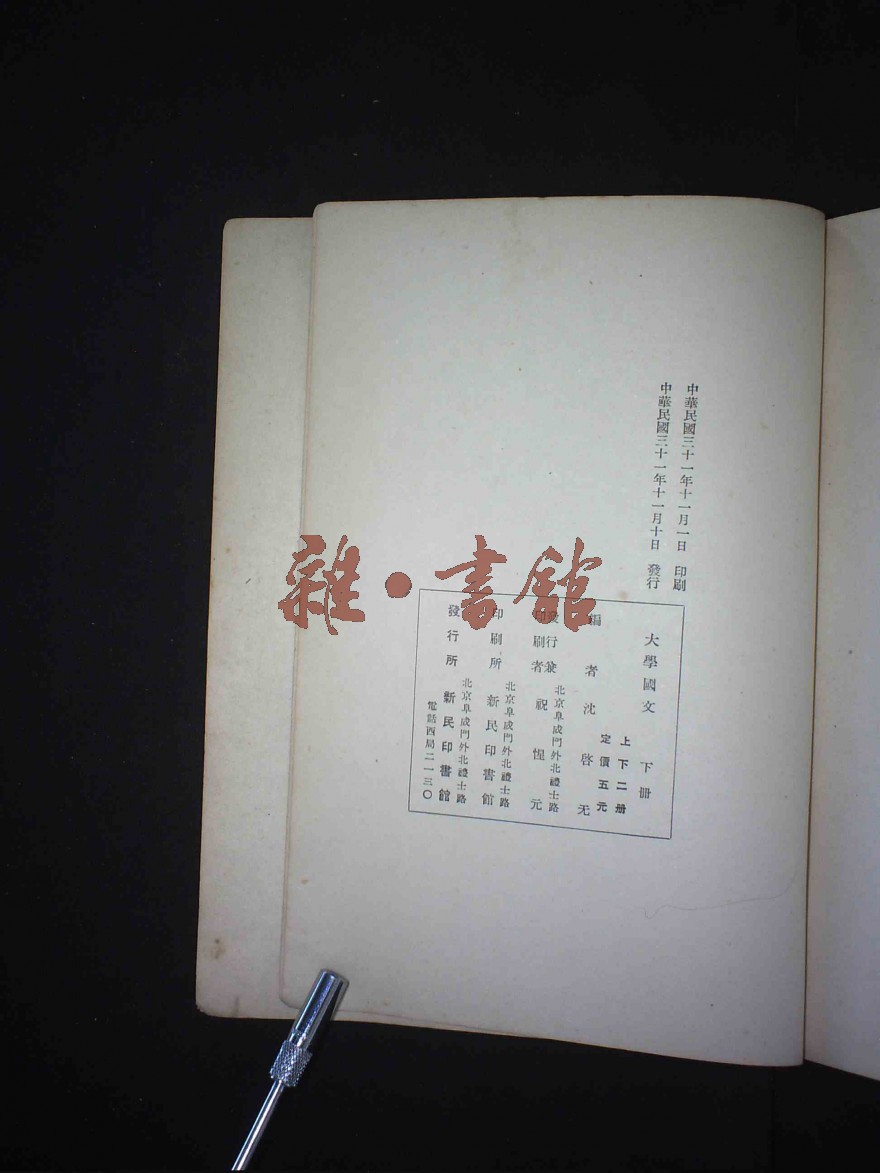 中華民國三十一年十一月一日 印刷
中華民國三十一年十一月十日 發行
大學國文 下冊
上下二册
定價五元
編者 沈啓无
北京阜成門外北禮士路
印刷者 祝惺元
北京阜成門外北禮士路
印刷所 新民印書館
北京阜成門外北禮士路
發行所 新民印書館
電話西局二一三〇
雜·書館